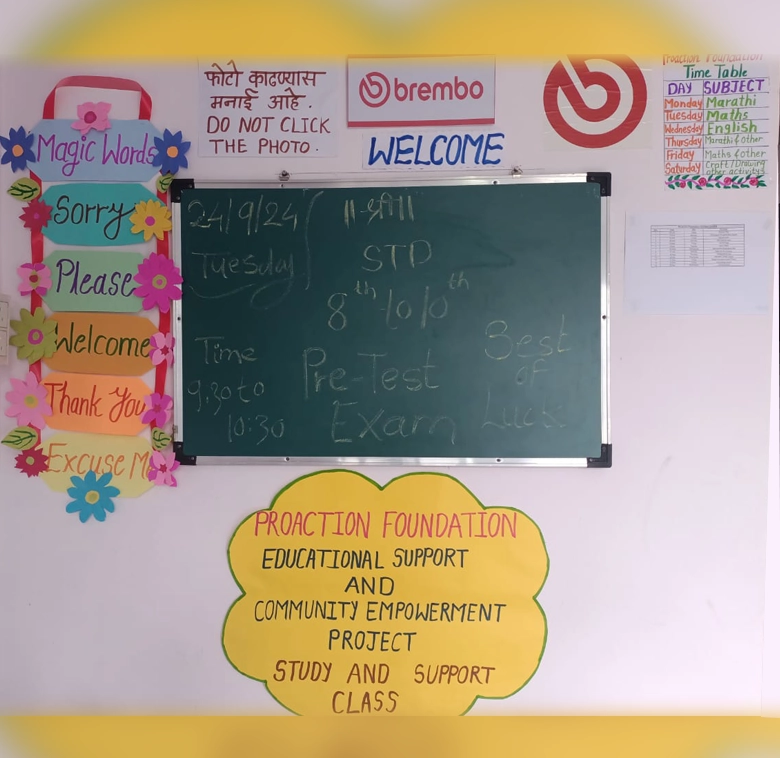 Magic Words
Sorry
Please
Welcome
Thank You
Excuse M
फोटो काढण्यास
मनाई आहे.
DO NOT CLICK
THE PHOTO.
brembo
WELCOME
24/9/24
Tuesday
Time
9:30 to
10:30
॥श्री॥
STD
8th to 10th
Pre-Test
Exam
Best
of
Luck
Proaction Foundation
Time Table
DAY SUBJECT
Monday Marathi
Tuesday Maths
Wednesday English
Thursday Marathi & other
Friday Maths & other
Saturday Craft/Drawing
other activity
PROACTION FOUNDATION
EDUCATIONAL SUPPORT
AND
COMMUNITY EMPOWERMENT
PROJECT
STUDY AND SUPPORT
CLASS